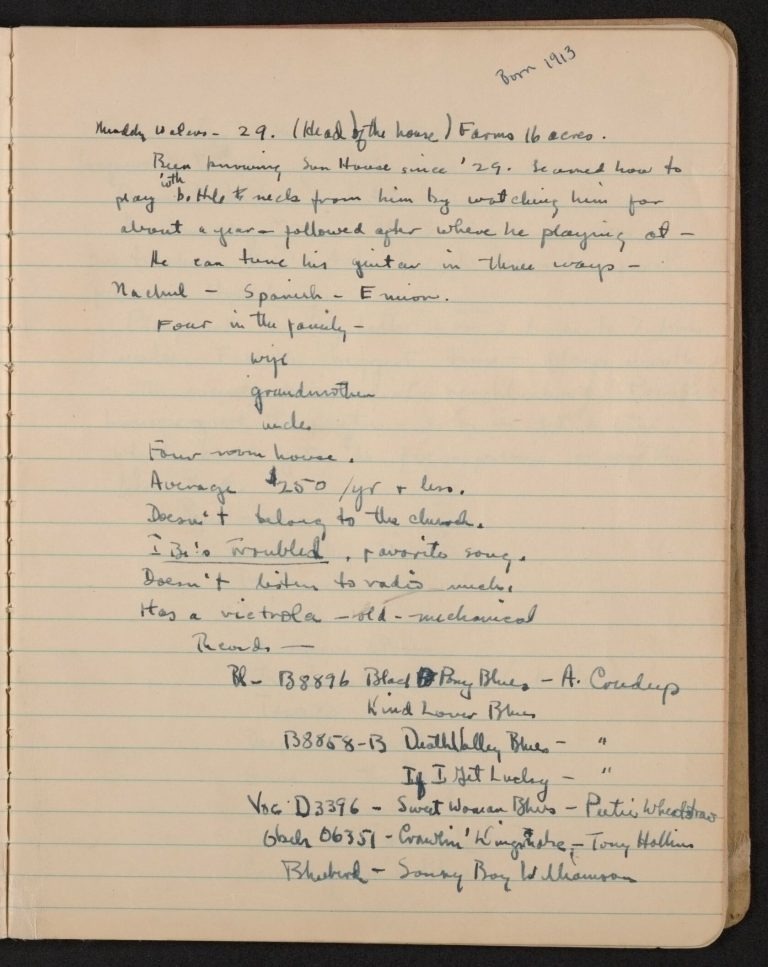 Born 1913
Muddy Waters - 29. (Head of the house) Farms 16 acres.
Been knowing Son House since '29. Learned how to
with
play bottle neck from him by watching him for
about a year - followed after where he playing at -
He can tune his guitar in three ways -
Nachul - Spanish - E minor.
Four in the family -
wife
grandmother
uncle
Four room house.
Average $250 /yr + less.
Doesn't belong to the church.
I Be's Troubled, favorite song.
Doesn't listen to radio much.
Has a victrola - old - mechanical
Records -
Bl - B8896 Black Pony Blues - A. Crudup
Kind Lover Blues
B8858-B Death Valley Blues - "
If I Get Lucky - "
Voc D3396 - Sweet Woman Blues - Peetie Wheatstraw
06351 - Crawlin' Kingsnake - Tony Hollins
Bluebird - Sonny Boy Williamson